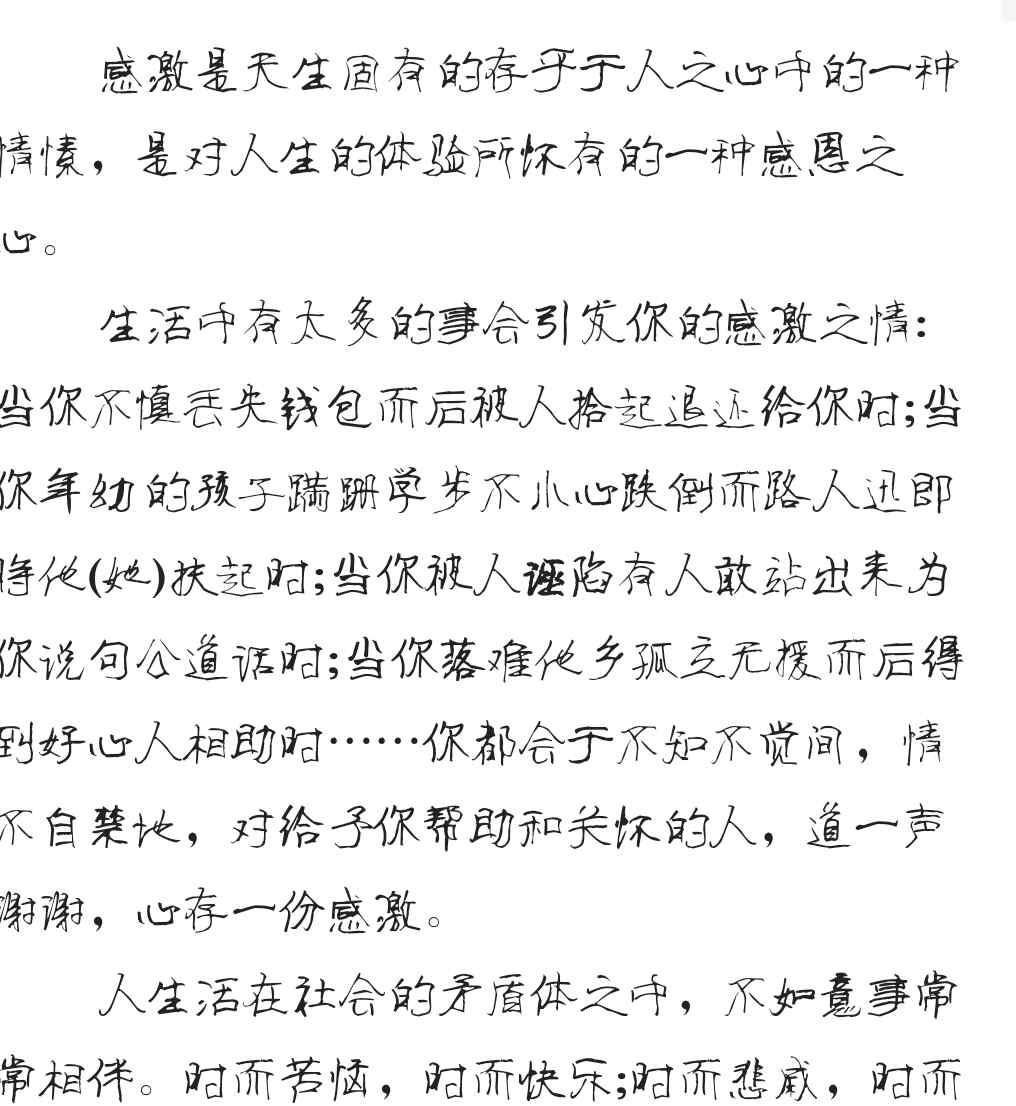 感激是天生固有的存乎于人之心中的一种
情愫，是对人生的体验所怀有的一种感恩之
心。
生活中有太多的事会引发你的感激之情：
当你不慎丢失钱包而后被人拾起退还给你时;当
你年幼的孩子蹒跚学步不小心跌倒而路人迅即
将他(她)扶起时;当你被人诬陷有人敢站出来为
你说句公道话时;当你落难他乡孤立无援而后得
到好心人相助时……你都会于不知不觉间，情
不自禁地，对给予你帮助和关怀的人，道一声
谢谢，心存一份感激。
人生活在社会的矛盾体之中，不如意事常
常相伴。时而苦恼，时而快乐;时而悲戚，时而